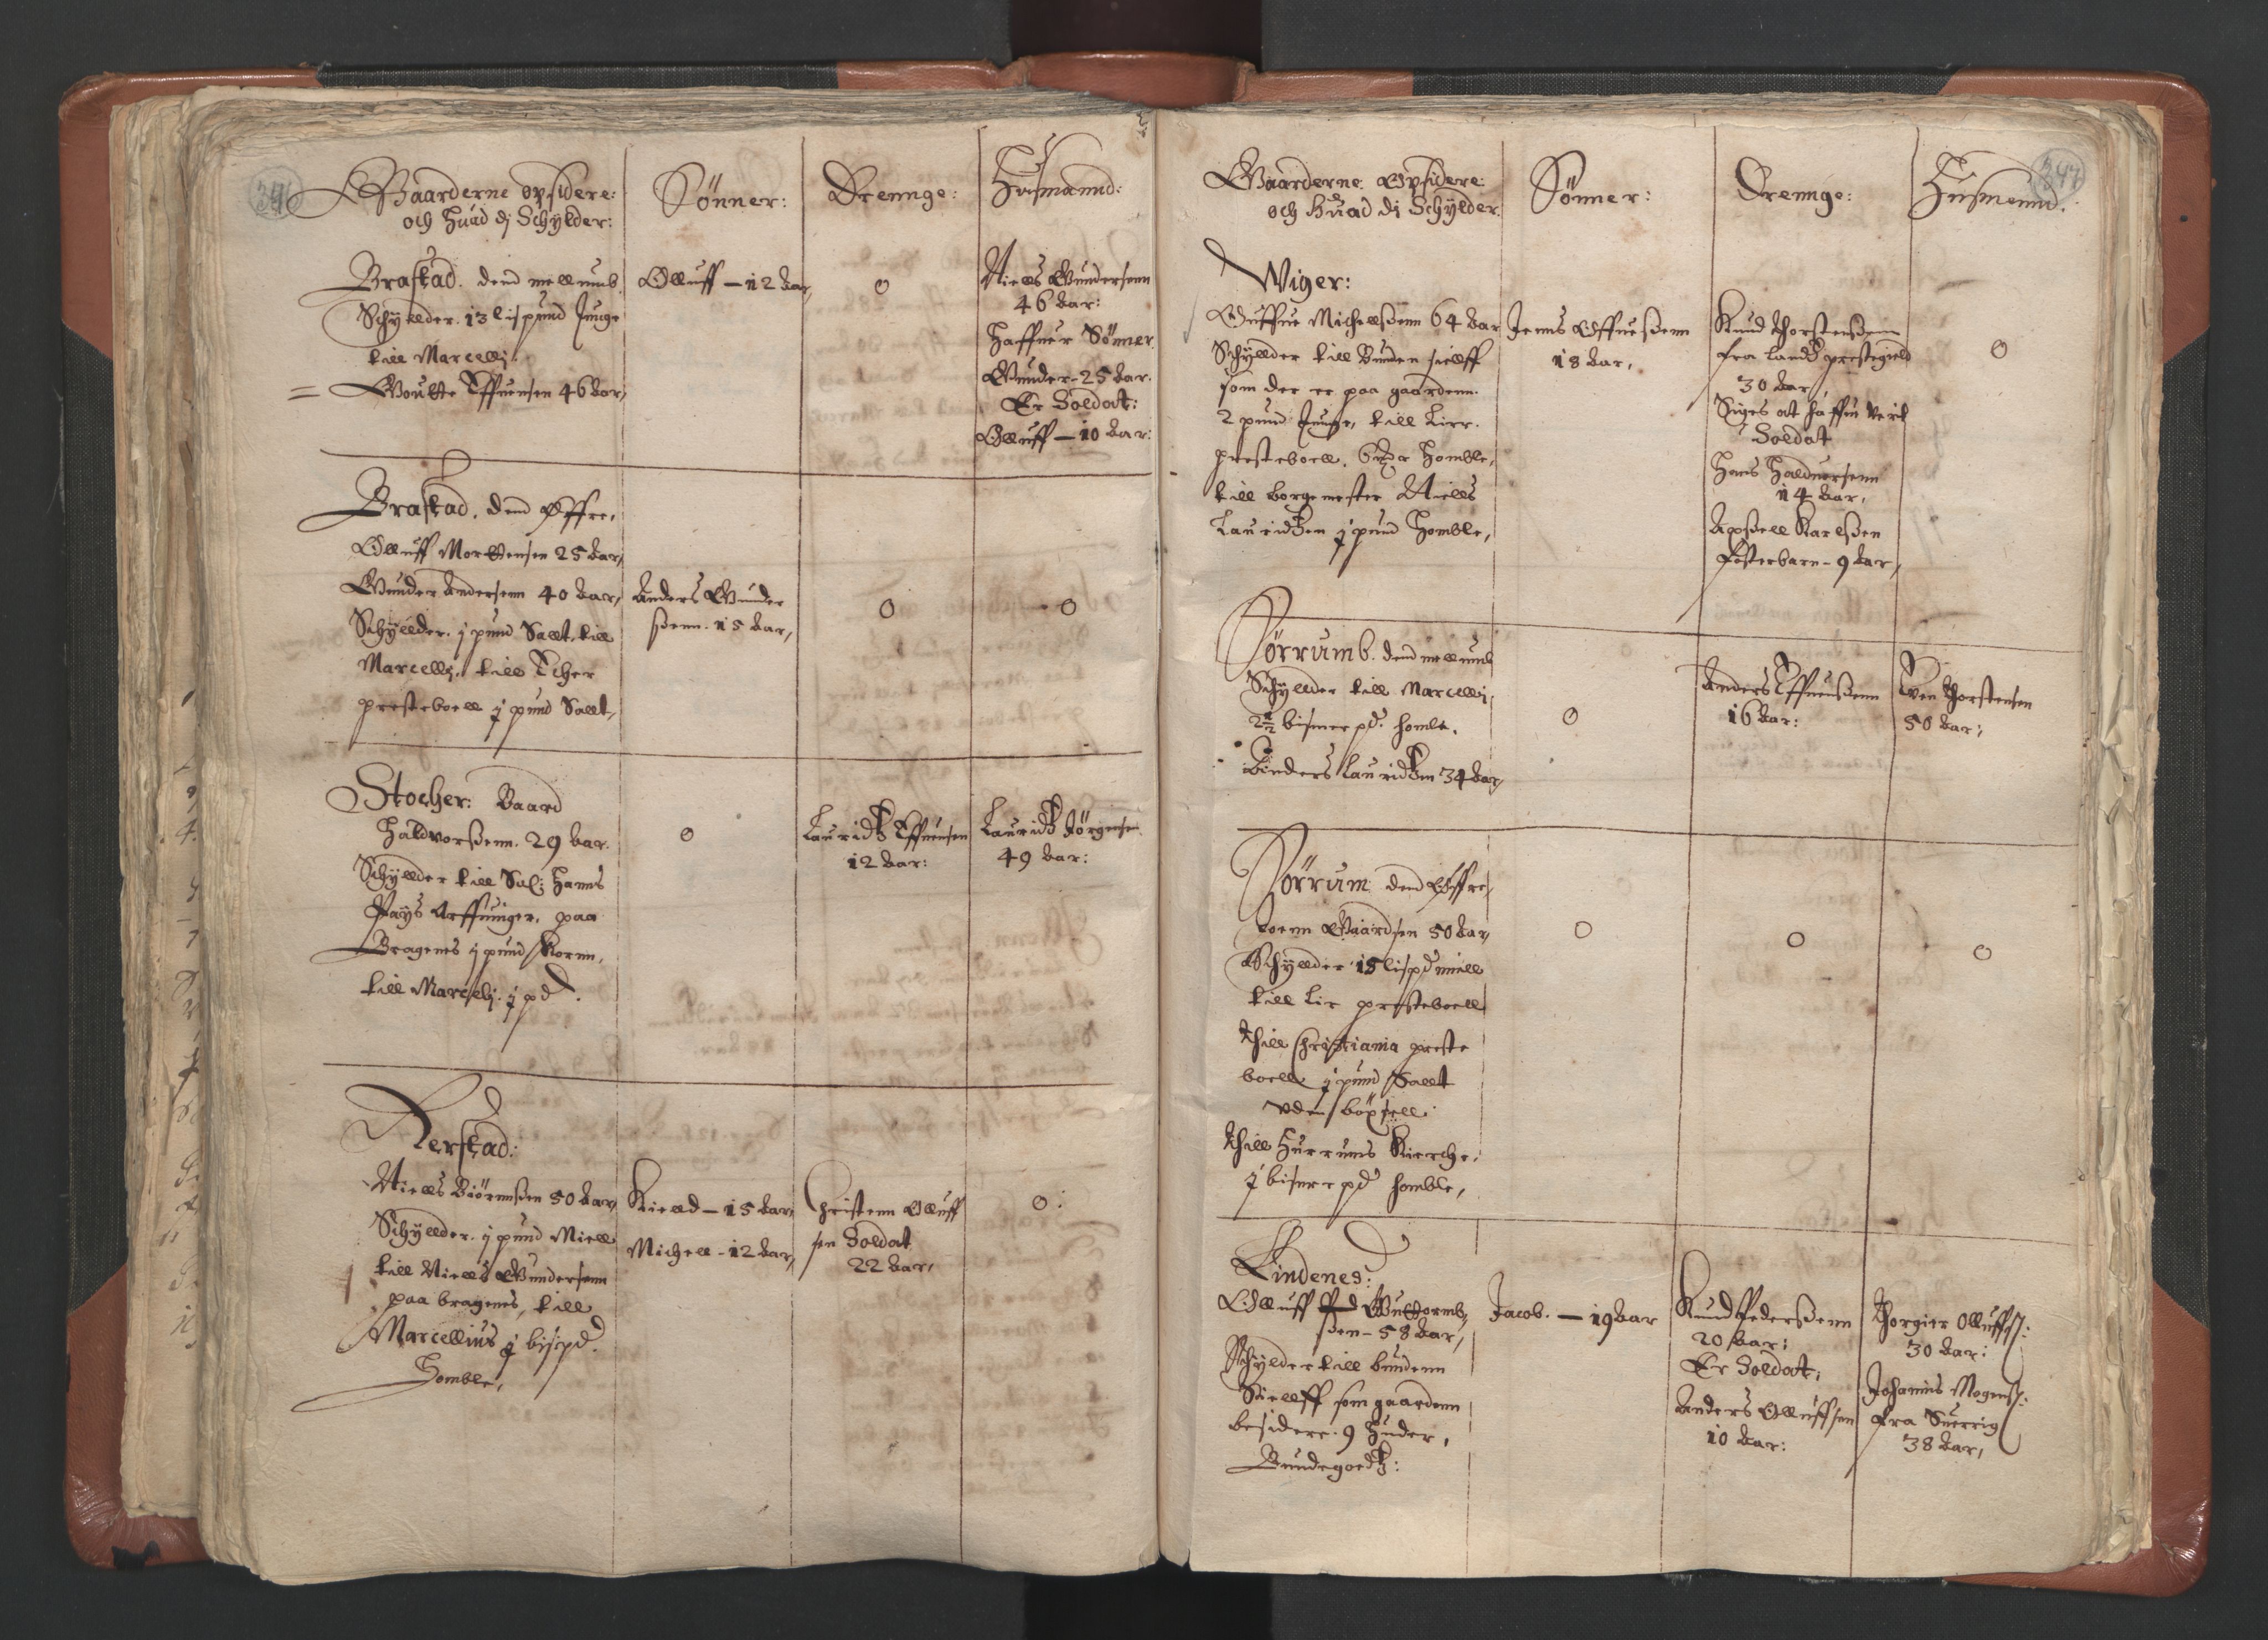 346
Gaarderne Opsidere:
och Huad dj Schylder:
Sønner:
Drennge:
Husmannd:
Brastad. dend mellumb
Schyllder. 13 lispund
till Marcellj.
Goutte Effuensen 46 aar,
Olluff — 12 aar,
0
Niells Gundersenn
46 aar:
Haffuer Sønner
Gunder - 25 aar.
Er Soldat:
Olluff — 10 aar:
Brastad. dend Øffre,
Olluff Mortensen 25 aar,
Gunder Andersenn 40 aar,
Schyllder. j pund Sallt. till
Marcellj. till Echer
presteboell j pund Sallt,
Anders Gunder
ßenn. 15 aar,
0
0
Stocher: Baard
Haldvorßenn. 29 aar.
Schyllder till Sal: Hanns
Pays Arffuinger. paa
Bragenes j pund Kornn,
till Marcelij. j pd.
0
Lauridtz Effuensen
12 aar:
Lauridtz Jørgensen
49 aar:
Rerstad:
Niells Biørnnßen 50 aar,
Schyllder. j pund Miell
till Niells Gundersenn
paa bragenes, till
Marcellius j bispd.
Homble,
Kield — 15 aar,
Michell - 12 aar,
Christenn Olluff
sen Soldat
22 aar,
0:
347
Gaarderne Opsidere:
och Huad di Schylder.
Sønner:
Drennge:
Husmennd.
Wiger:
Guffue Michellßenn 64 aar
Schyllder till Bunden siellff
som der er paa gaardenn.
2 pund till Lier.
presteboell. Homble,
till borgemester Niells
Lauridtzen j pund Homble,
Jenns Gffueßenn
18 aar,
Knud Thorstenßenn
fra Lands prestegield
30 aar,
Siges at haffue verit
Soldat
Hans Halduorsenn
14 aar,
Axßell Karlßen
Fosterbarn - 9 aar,
0
Sørrumb. dend mellumb
Schyllder till Marcellj,
2½ bismer pd. homle.
Enders Lauridtzen 34 aar,
0
Anders Effuenßenn
16 aar:
Even Thorstensen
50 aar;
Sørrum dend Øffre,
Joenn Gaardsen 50 aar,
Schyllder 15 lispd miell
till Lier presteboell
Thill Christiania preste
boell j pund Sallt
vden bøxsell:
Thill Hurrums Kierche,
j bismer pd homble,
0
0
0
Lindenes:
Olluff Guttormb,
ßen - 58 aar,
Schylder till bundenn
Siellff som gaardenn
besidere. 9 Huder,
Bundegoedtz:
Jacob. — 19 aar
Knud Pederßenn
20 aar:
Er Soldat,
Anders Olluffsen
10 aar:
Thorgier Olluffs:
30 aar:
Johannis Mogens:
fra Suerrig
38 aar,